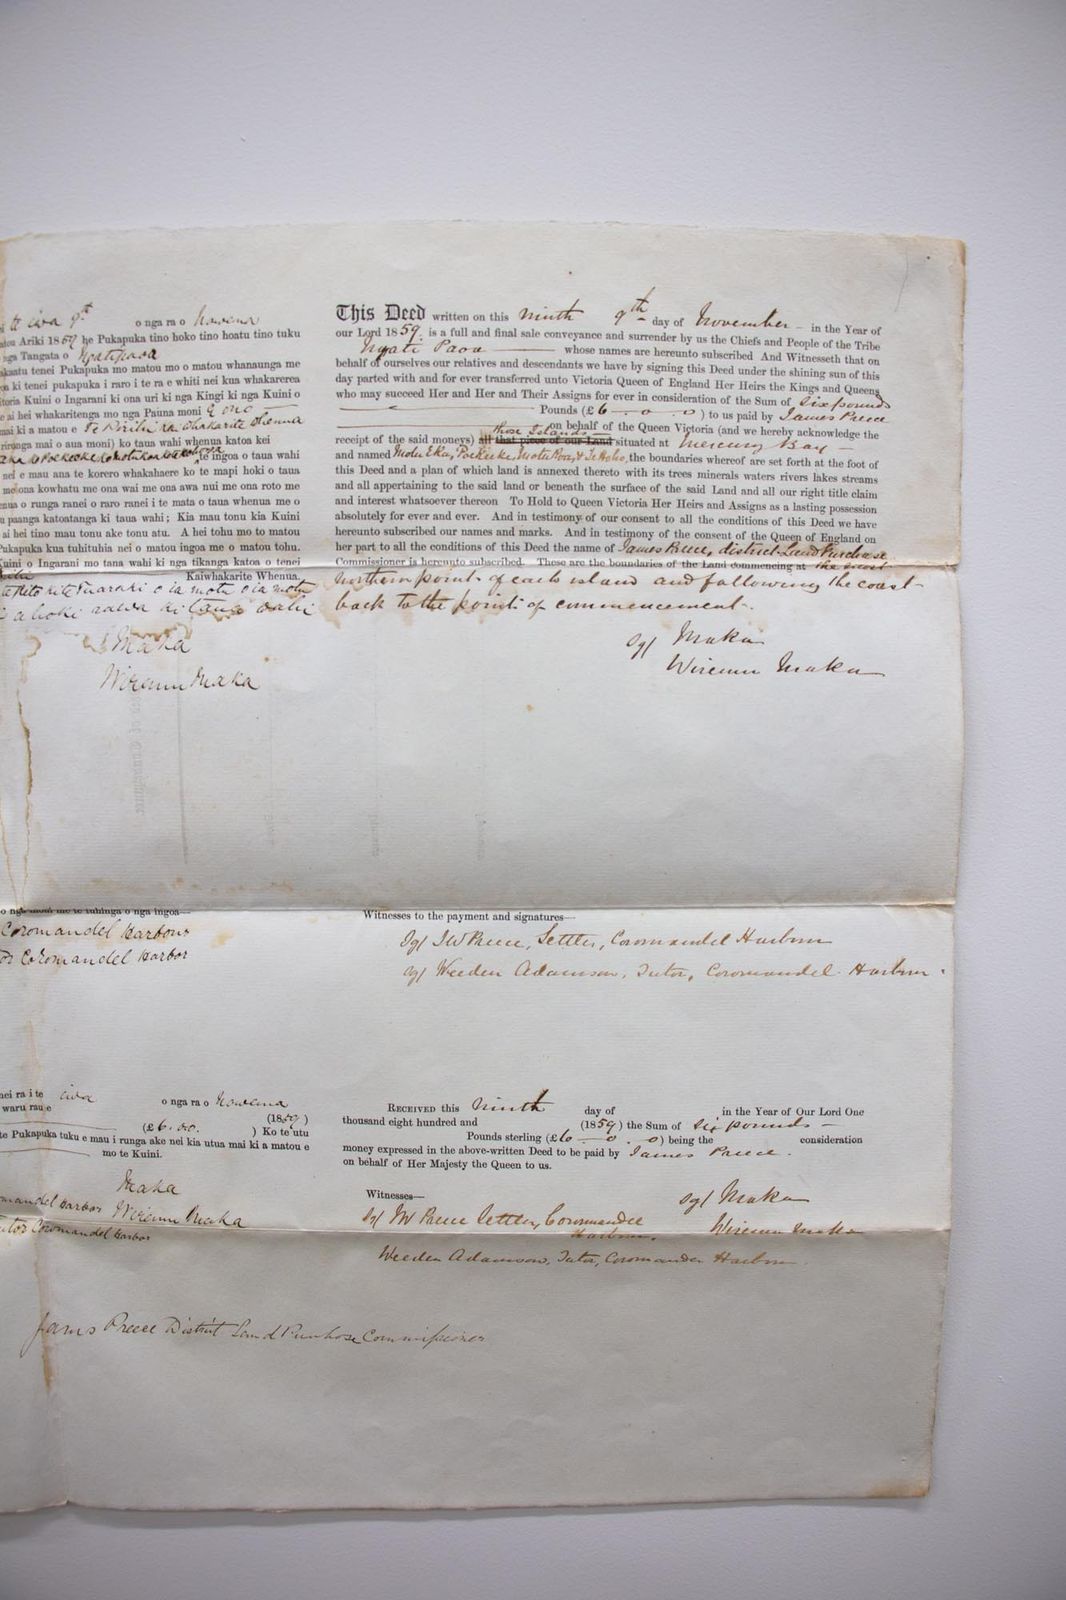 te iwa 9th o nga ra o Nowema
Ariki 1859 he Pukapuka tino hoko tino hoatu tino tuku
nga Tangata o Ngatipaoa
tenei Pukapuka mo matou mo o matou whanaunga me
ki tenei pukapuka i raro i te ra e whiti nei kua whakarerea
Kuini o Ingarani ki ona uri ki nga Kingi ki nga Kuini o
ai hei whakaritenga mo nga Pauna moni e ono
mai ki a matou e Te Pirihi kai whakarite whenua
mai o aua moni) ko taua wahi whenua katoa kei
te ingoa o taua wahi
nei e mau ana te korero whakahaere ko te mapi hoki o taua
me ona kowhatu me ona wai me ona awa nui me ona roto me
o runga ranei o raro ranei i te mata o taua whenua me o
paanga katoatanga ki taua wahi; Kia mau tonu kia Kuini
ai hei tino mau tonu ake tonu atu. A hei tohu mo to matou
Pukapuka kua tuhituhia nei o matou ingoa me o matou tohu.
Kuini o Ingarani mo tana wahi ki nga tikanga katoa o tenei
Kaiwhakarite Whenua.
o ia motu o ia motu
a hoki aawa ki taua wahi
Maka
Wiremu Maka
me te tuhinga o nga ingoa—
Coromandel Harbour
Coromandel Harbor
ra i te iwa o nga ra o Nowema
waru rau e (1859)
(£6.0.0. ) Ko te utu
te Pukapuka tuke e mau i runga ake nei kia utua mai ki a matou e
mo te Kuini.
Maka
Harbor Wiremu Maka
Coromandel Harbor
This Deed written on this ninth 9th day of November – in the Year of
our Lord 1859. is a full and final sale conveyance and surrender by us the Chiefs and People of the Tribe
Ngati Paoa — whose names are hereunto subscribed And Witnesseth that on
behalf of ourselves our relatives and descendants we have by signing this Deed under the shining sun of this
day parted with and for ever transferred unto Victoria Queen of England Her Heirs the Kings and Queens
who may succeed Her and Her and Their Assigns for ever in consideration of the Sum of Six pounds
— Pounds (£6 – 0 . 0) to us paid by James Preece
— on behalf of the Queen Victoria (and we hereby acknowledge the
those Islands
receipt of the said moneys) all that piece of our Land situated at Mercury Bay –
and named Motu Ekaa, Poikeeke, Motu Koru, & Te Hoho, the boundaries whereof are set forth at the foot of
this Deed and a plan of which land is annexed thereto with its trees minerals waters rivers lakes streams
and all appertaining to the said land or beneath the surface of the said Land and all our right title claim
and interest whatsoever thereon To Hold to Queen Victoria Her Heirs and Assigns as a lasting possession
absolutely for ever and ever. And in testimony of our consent to all the conditions of this Deed we have
hereunto subscribed our names and marks. And in testimony of the consent of the Queen of England on
her part to all the conditions of this Deed the name of James Preece, district Land Purchase
Commissioner is hereunto subscribed. These are the boundaries of the Land commencing at the most
Northern point of each island and following the coast
back to the point of commencement.
Sg/ Maka
Wiremu Maka
Witnesses to the payment and signatures—
Sg/ JW Preece, Settler, Coromandel Harbour
Sg/ Weeden Adamson, Tutor, Coromandel Harbour.
Received this Ninth day of , in the Year of Our Lord One
thousand eight hundred and (1859) the Sum of six pounds –
Pounds sterling (£6 – 0 . 0) being the consideration
money expressed in the above-written Deed to be paid by James Preece.
on behalf of Her Majesty the Queen to us.
Witnesses—
Sg/ Maka
Sg/ JW Preece Settler, Coromandel
Harbour.
Wiremu Maka
Weeden Adamson, Tutor, Coromandel Harbour.
James Preece District Land Purchase Commissioner